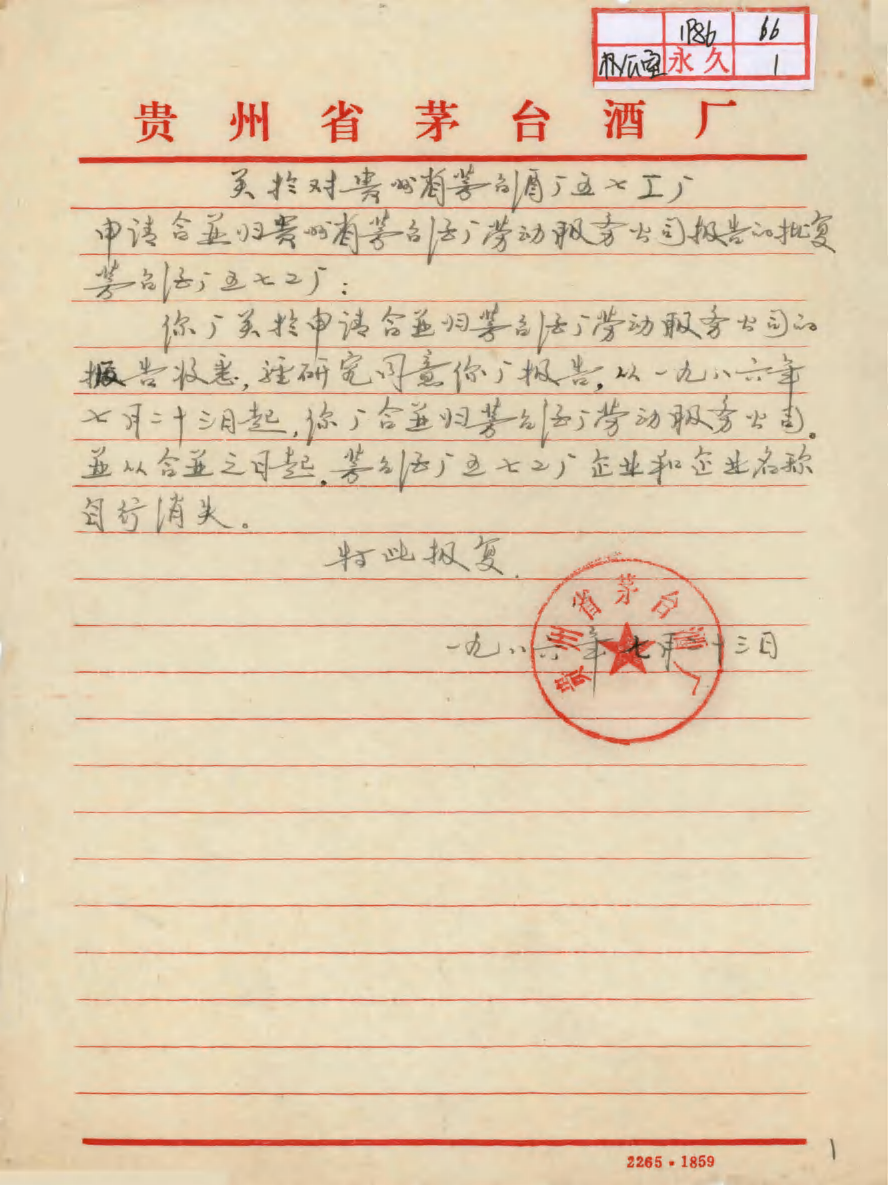 1986 66
办公室 永久 1
贵州省茅台酒厂
关于对贵州省茅台酒厂五七工厂
申请合並归贵州省茅台酒厂劳动服务公司报告的批复
茅台酒厂五七工厂：
你厂关于申请合並归茅台酒厂劳动服务公司的
报告收悉,经研究同意你厂报告,从一九八六年
七月二十三日起,你厂合並归茅台酒厂劳动服务公司。
並从合並之日起,茅台酒厂五七工厂企业和企业名称
自行消失。
特此批复.
贵州省茅台酒厂
一九八六年七月二十三日
2265·1859
1